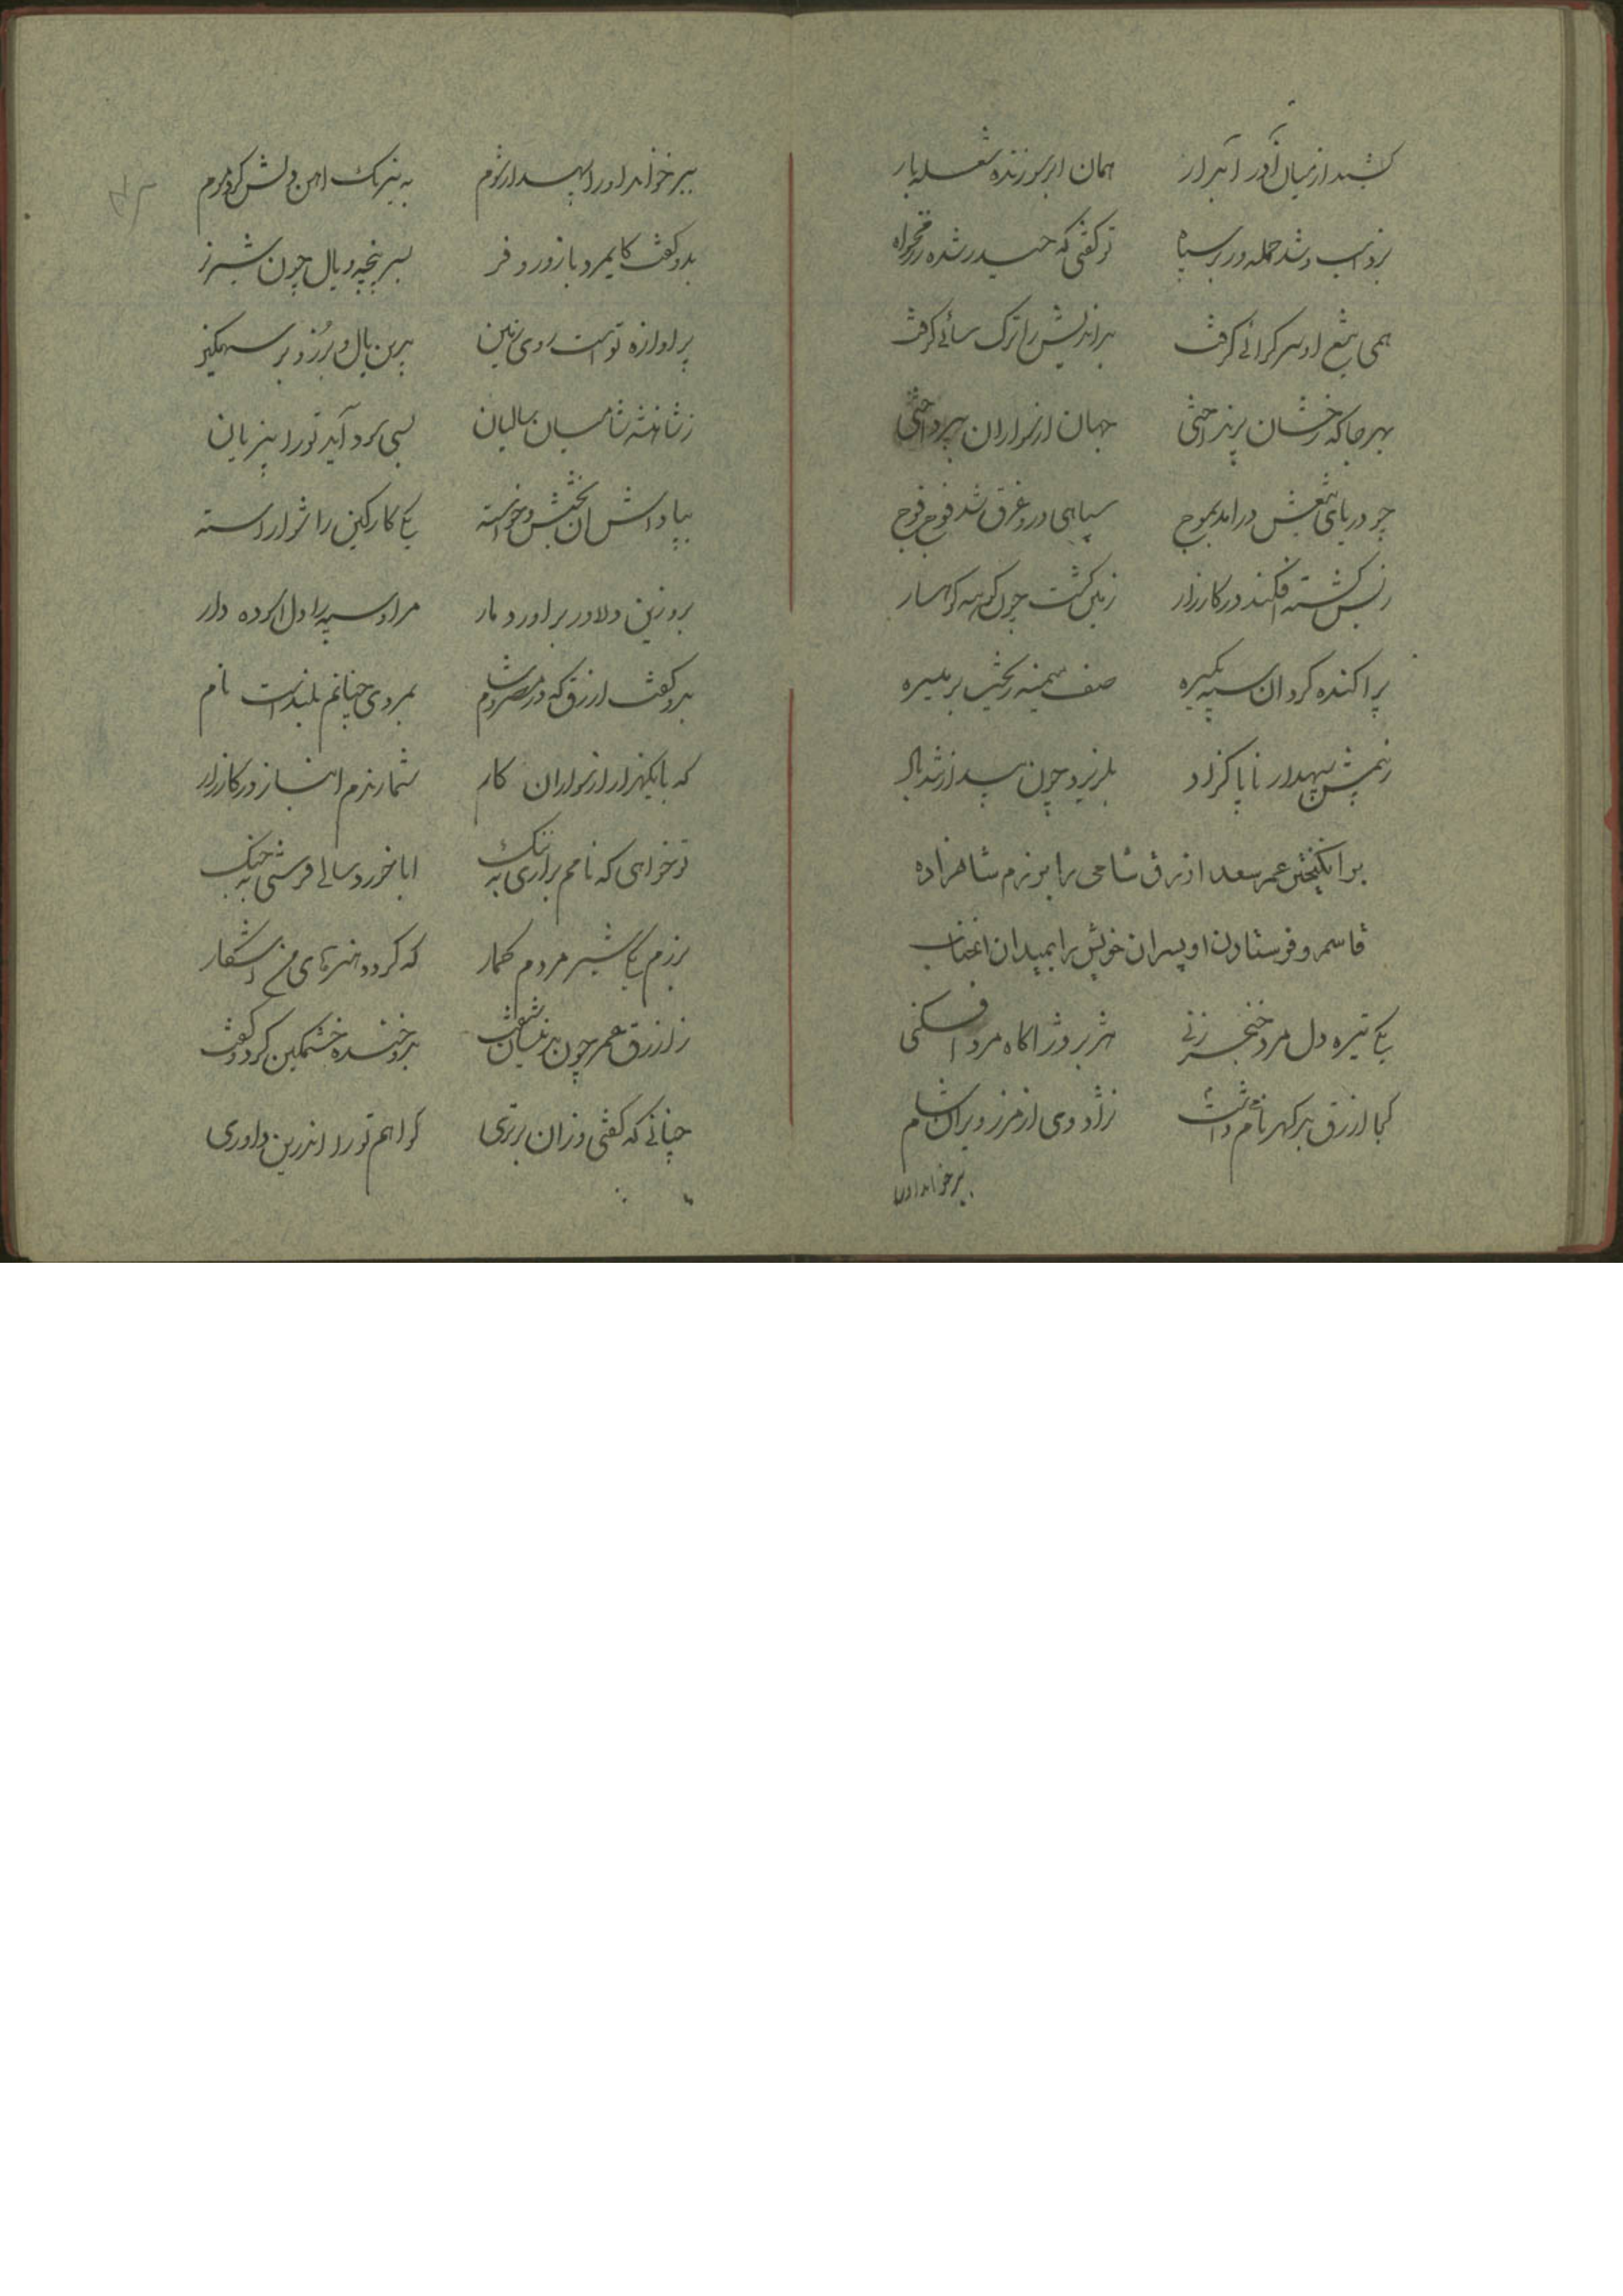 کشید از میان آذر آبدار همان ابر سوزنده شعله بار
بزد اسب و شد حمله ور بر سپاه تو گفتی که حیدر شده رزمخواه
همی تیغ او سر گرائی گرفت بداندیش را ترک سائی گرفت
بهر جا که رخشان پرند آختی جهان از سواران بپرداختی
چو دریای تیغش درامد بموج سپاهی درو غرق شد فوج فوج
ز بس کشته افکند در کارزار زمین گشت چون کوهه کوهسار
پراکنده کرد ان سپه یکسره صف میمنه ریخت بر میسره
ز بیمش سپهدار ناپاکزاد بلرزید چون بید از تند باد
برانگیختن عمر سعد ازرق شامی را بر رزم شاهزاده
قاسم و فرستادن او پسران خویش را بمیدان انجناب
یکی تیره دل مرد خنجر زنی هژبر وژ اگاه مرد افکنی
کجا ازرق بد گهر نام داشت نژاد وی از مرز ویران شام
ببر خواند او را
ببر خواند او را سپهدار شوم به نیرنگ اهن دلش کرد موم
بدو گفت کایمرد با زور و فر بسر پنجه و یال چون شیر نر
پر اوازه توست روی زمین بدین یال و برز و بر سهمگین
ز شاهنشه شامیان سالیان بسی سود آید تو را بیزیان
بپاداش ان بخشش و خواسته یکی کار کین را شو اراسته
برو زین دلاور براور دمار مراد سپه را دل اسوده دار
بدو گفت ازرق که در مصر و شام بمردی چنانم بلند است نام
که با یکهزار از سواران کار شمارندم انباز در کارزار
تو خواهی که نامم براری به ننگ ابا خورد سالی فرستی به جنگ
برزم یکی شیر مردم گمار که گردد هنرهای من اشکار
ز ازرق عمر چون بدینسان شنفت بدو خنده خشمگین کرد و گفت
چنانی که گفتی وزان برتری گواهم تو را اندرین داوری